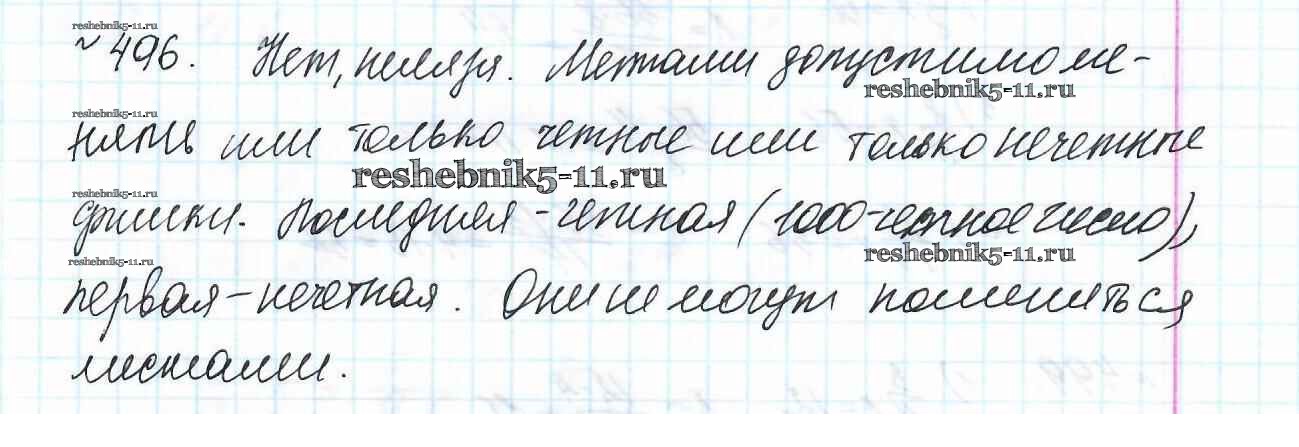 reshebnik5-11.ru
№496. Нет, нельзя. Местами допустимо ме-
reshebnik5-11.ru
reshebnik5-11.ru
нять или только четные или только нечетные
reshebnik5-11.ru
reshebnik5-11.ru
фишки. Последняя - четная (1000-четное число),
reshebnik5-11.ru
reshebnik5-11.ru
первая - нечетная. Они не могут поменяться
местами.